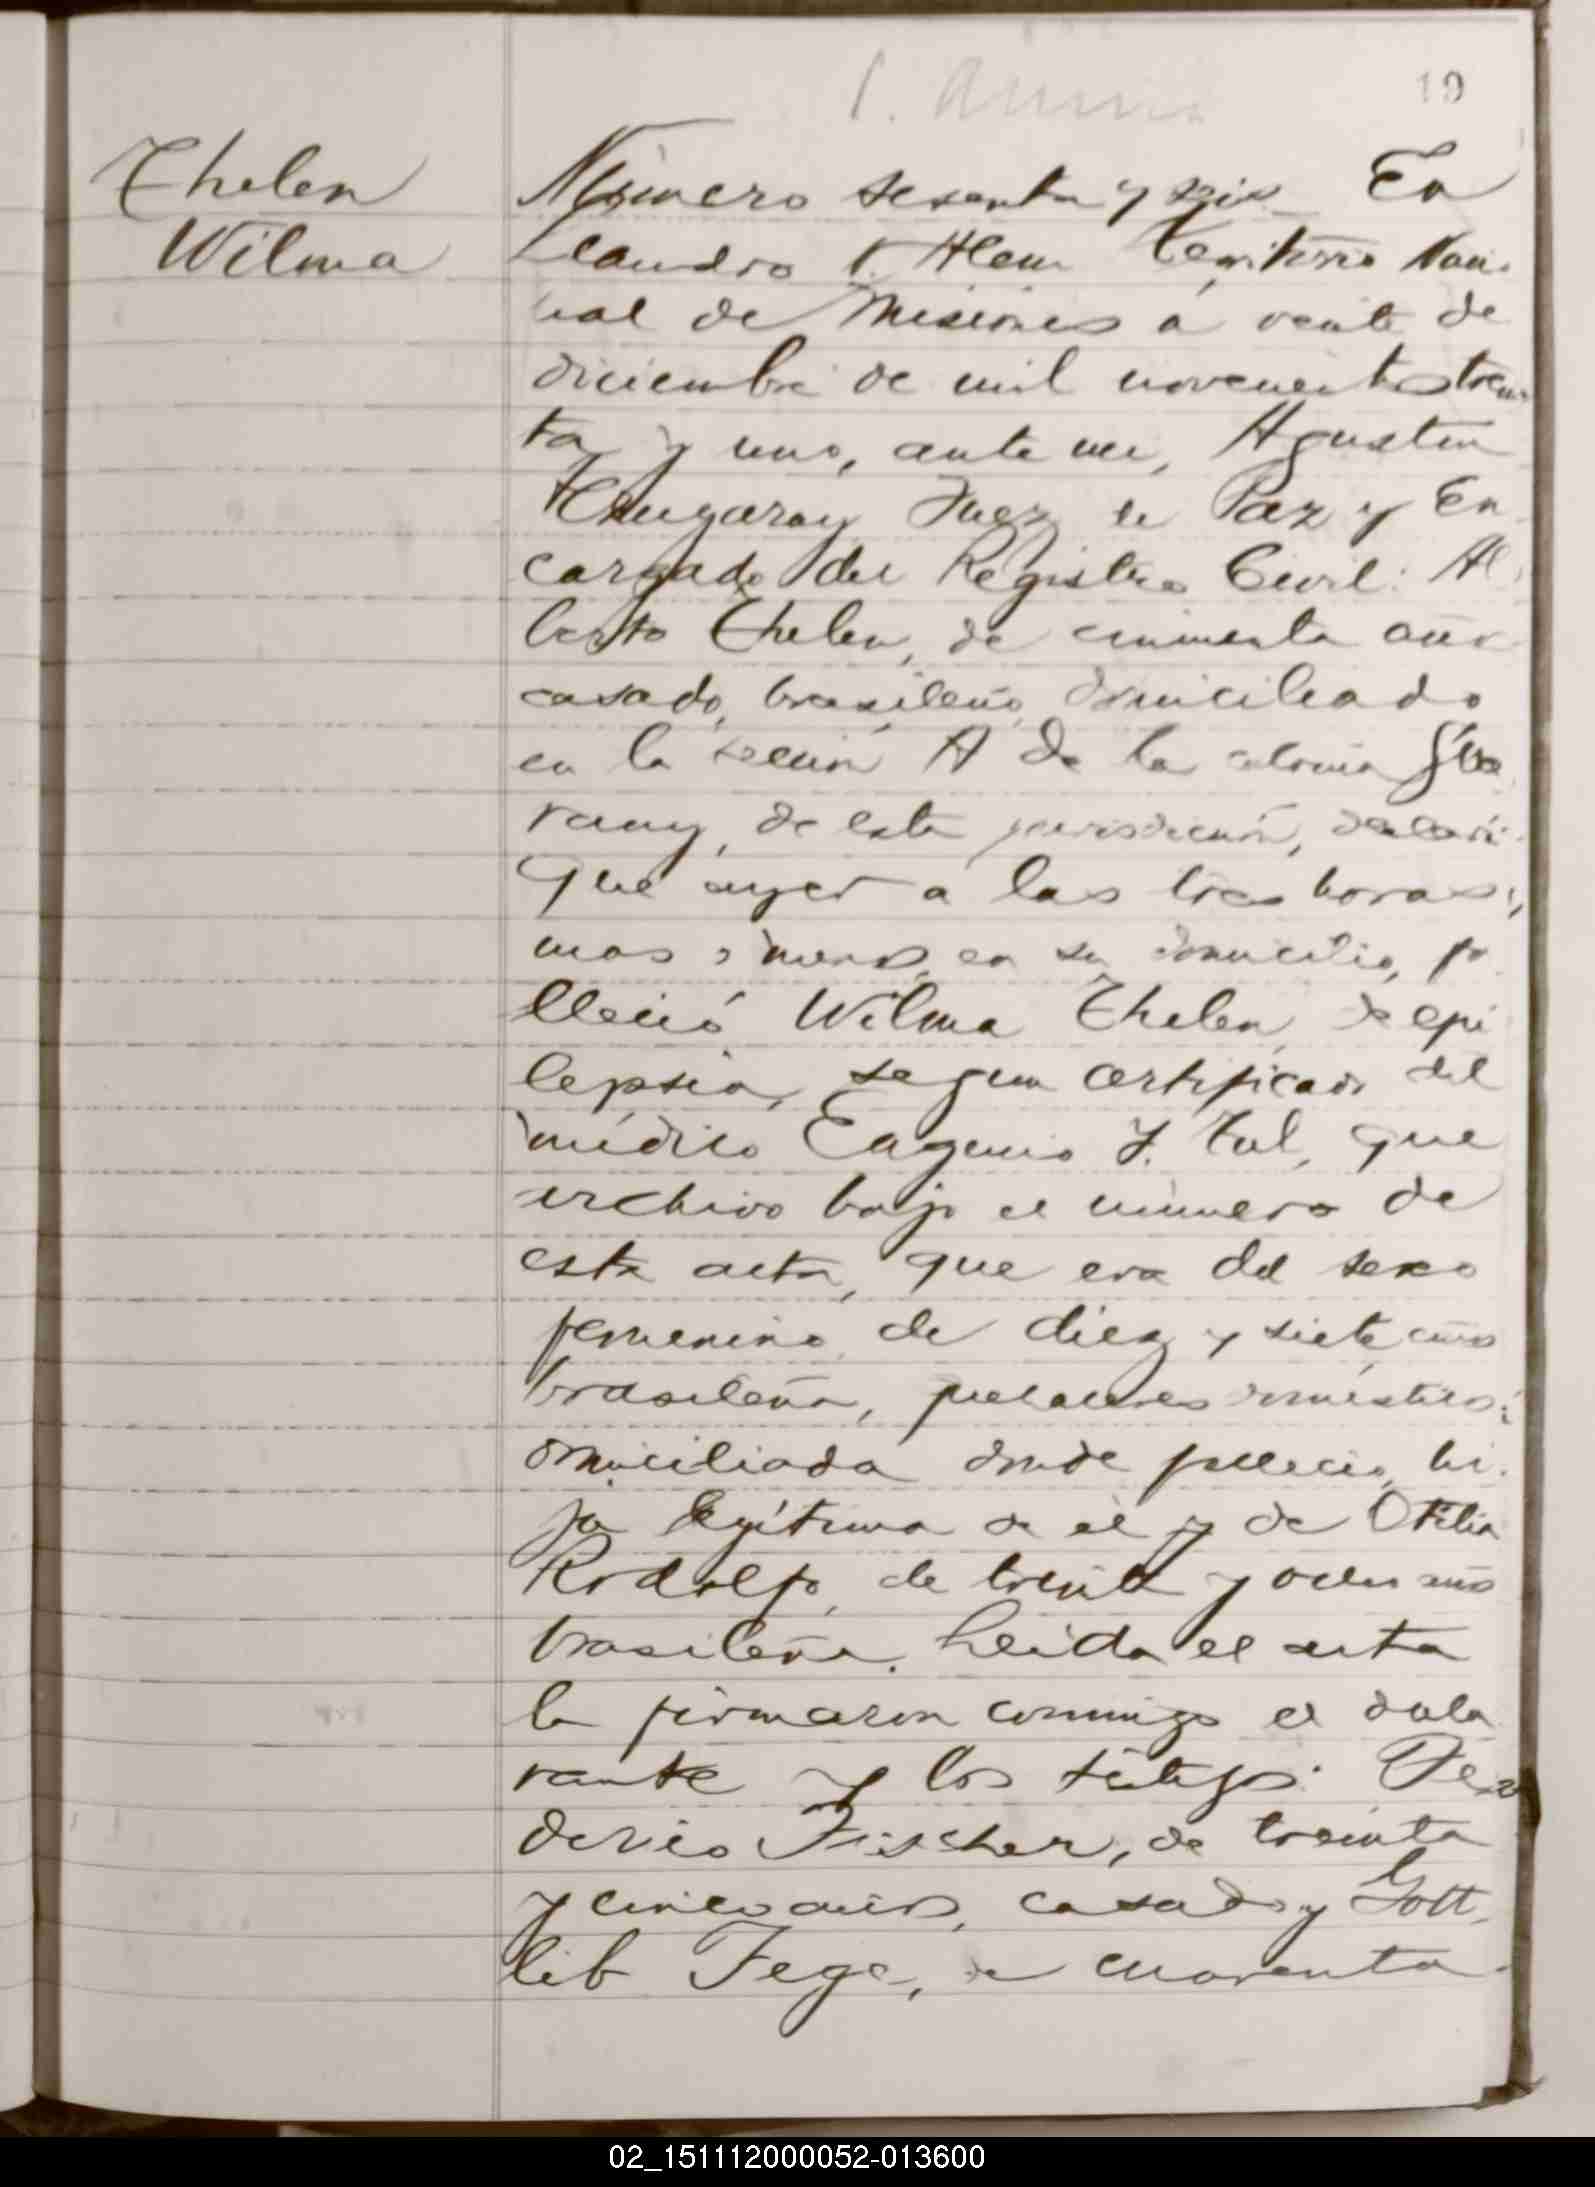 19
Thelen
Wilma
Número sesenta y seis En
Leandro N. Alem Territorio Naci-
onal de Misiones á veinte de
diciembre de mil novecientos trein-
ta y uno, ante mi, Agustin
Juez de Paz y En
cargado del Registro Civil: Al
berto Thelen, de cincuenta años
casado, brasileño, domiciliado
en la sección A de la colonia Gua
rany, de esta jurisdicción, declaró:
Que ayer a las tres horas,
mas o menos, en su domicilio, fa
lleció Wilma Thelen, de epi
lepsia, segun certificado del
médico Eugenio J. Tal, que
archivo bajo el número de
esta acta, que era del sexo
femenino, de diez y siete años
brasileña, quehaceres domésticos,
domiciliada donde falleció, hi-
ja legítima de él y de Otilia
Rodolfo, de treinta y ocho años
brasileña. Leida el acta
la firmaron conmigo el decla
rante y los testigos: Desi
derio Fischer, de treinta
y cinco años, casado y Gott
lib Fege, de cuarenta
02_151112000052-013600